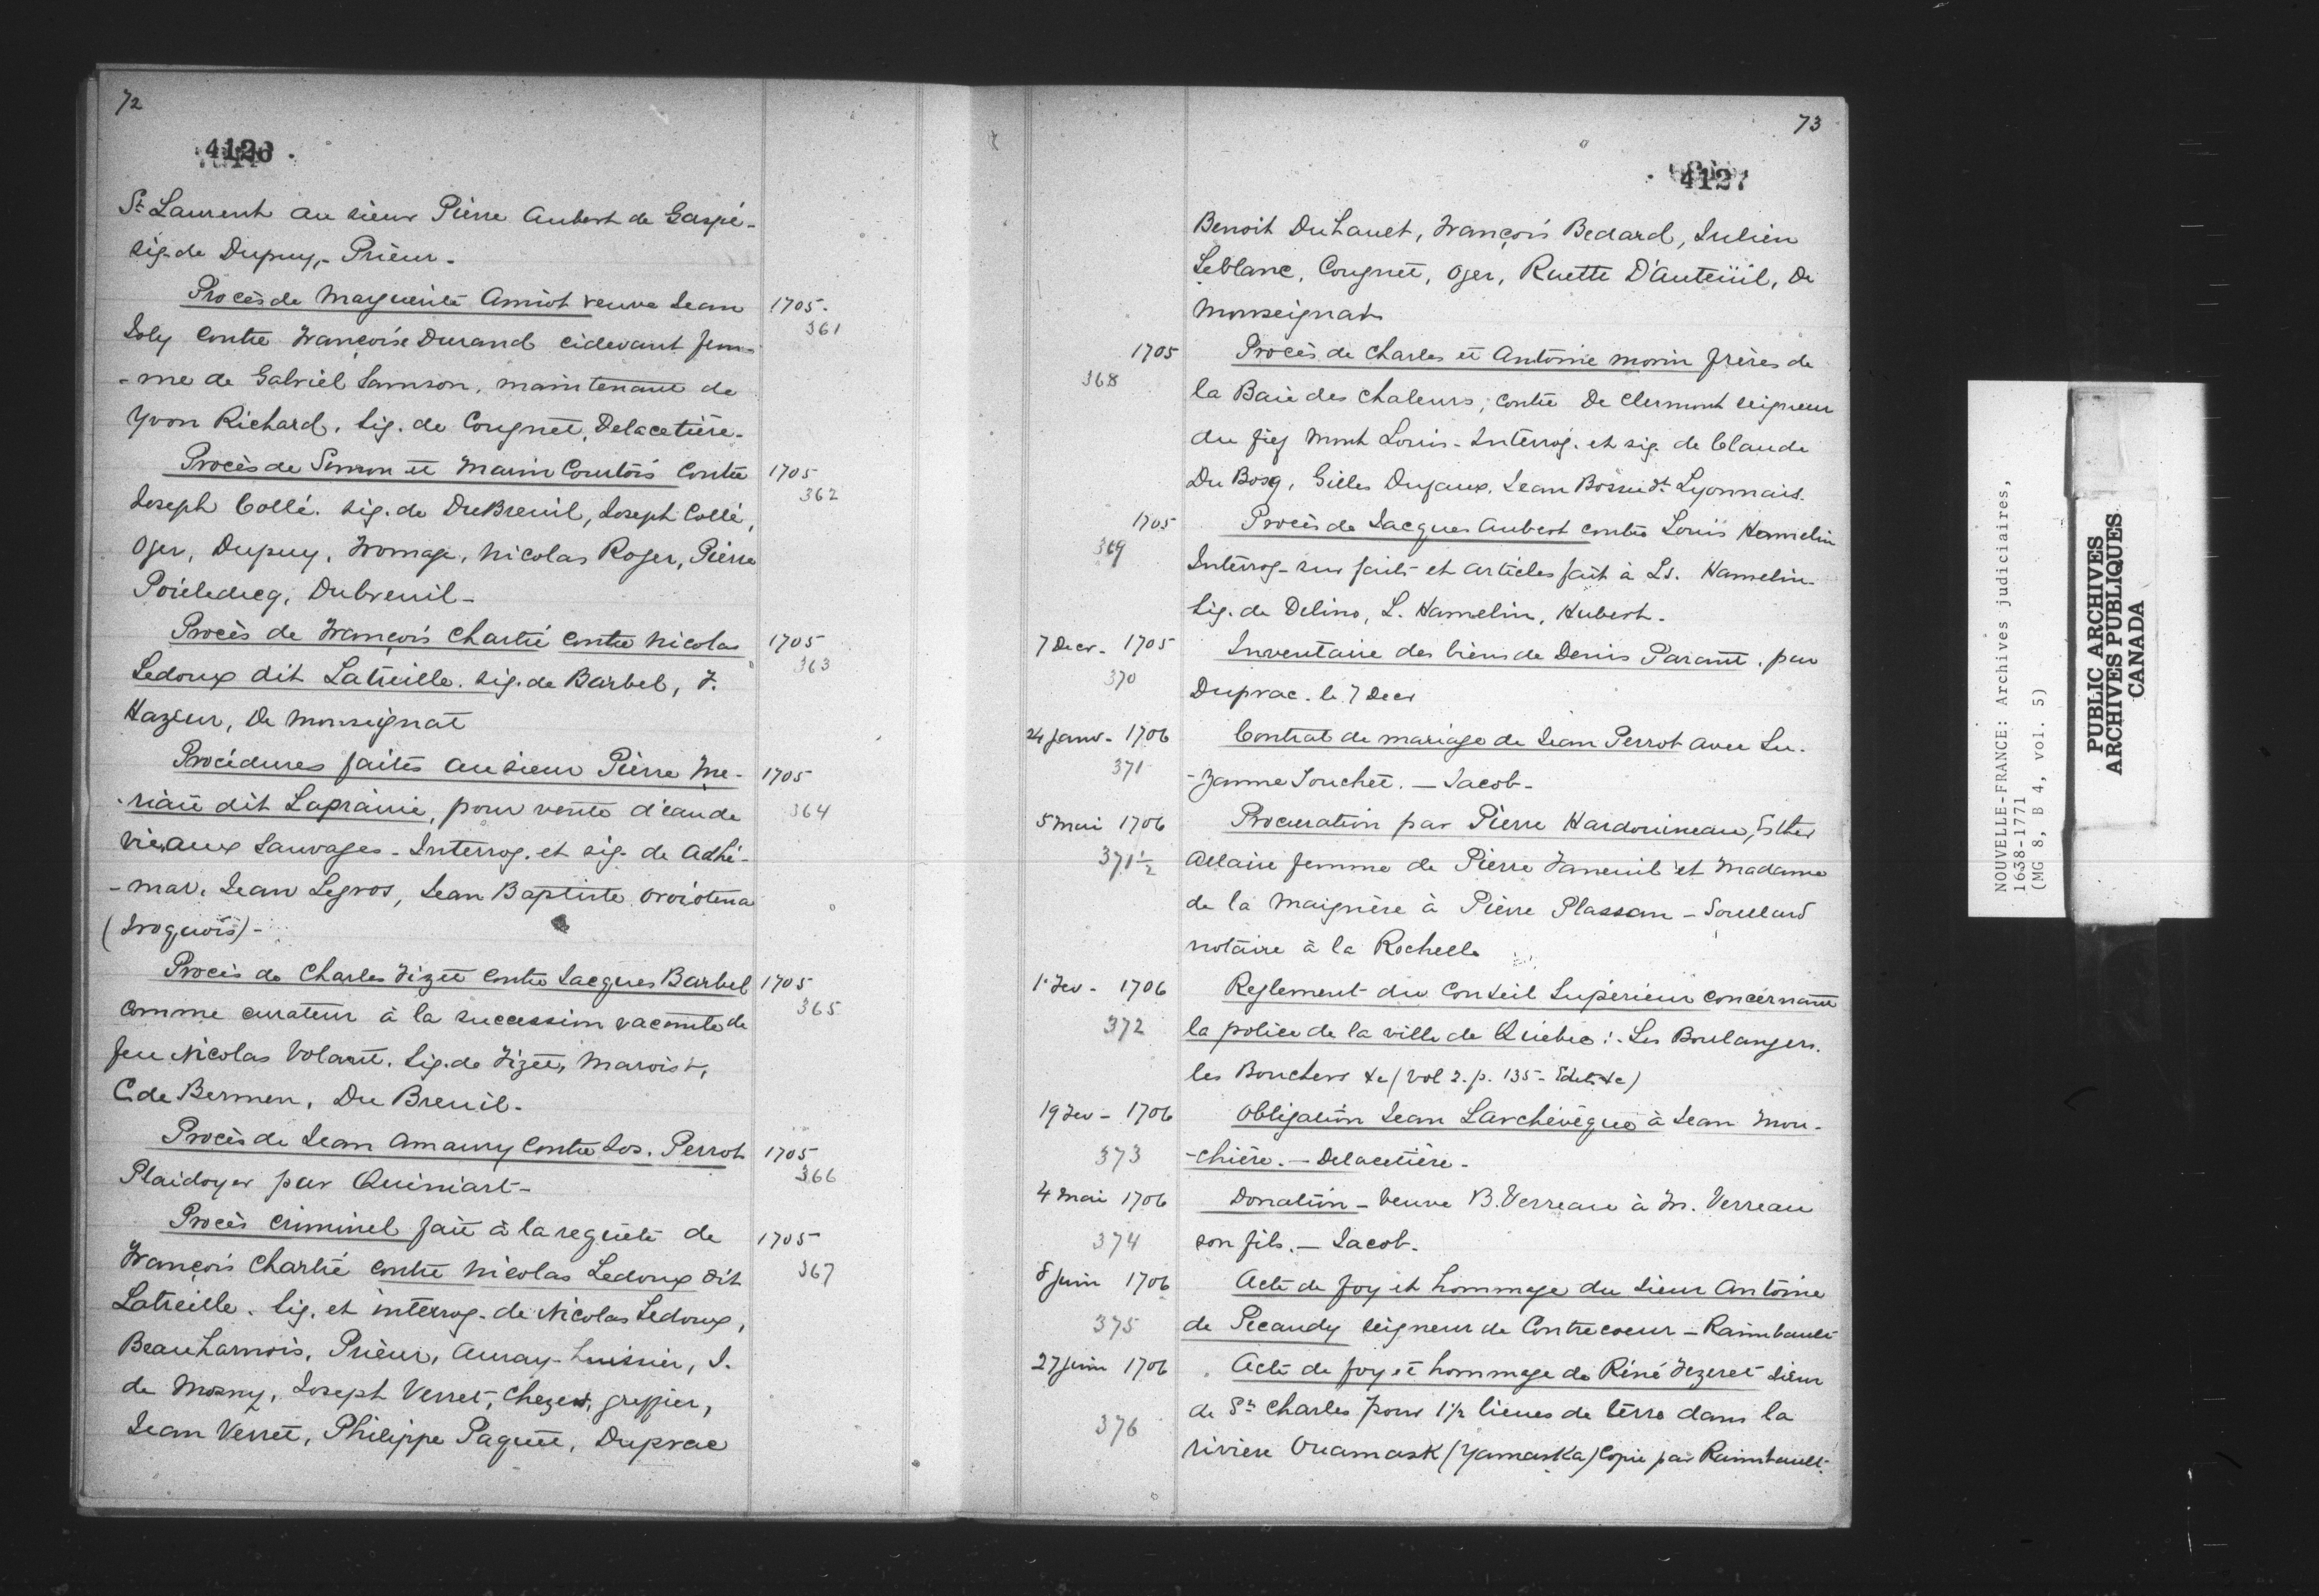 72
4126
St Laurent au sieur Pierre Aubert de Gaspé-
sig. de Dupuy,- Prieur-
Procès de Marguerite Amiot veuve Jean
1705-
361
Joly contre Françoise Durand cidevant fem-
-me de Gabriel Samson, maintenant de
Yvon Richard. Sig. de Congnet, Delacetière-
Procès de Simon et Marin Courtois contre
1705
362
Joseph Collé. Sig. de DuBreuil, Joseph Collé,
Oger, Dupuy, Fromage, Nicolas Roger, Pierre
Dubreuil-
Procès de François Chartié contre Nicolas
1705
363
Ledoux dit Latreille. Sig. de Barbel, F.
Hazeur, De Monseignat
Procédures faites au sieur Pierre Me-
1705
-riau dit Laprairie, pour vente d'eau de
364
vie aux Sauvages - Interrog. et sig. de Adhé-
-mar, Jean Legros, Jean Baptiste Oroiotena
(Iroquois)-
Procès de Charles Fizet contre Jacques Barbel
1705
365
Comme curateur à la succession vacante de
feu Nicolas Volant. Sig. de Fizet, Maroist,
C. de Bermen, Du Breuil-
Procès de Jean Amaury contre Jos. Perrot
1705
366
Plaidoyer par Quiniart-
Procès criminel fait à la requête de
1705
François Chartié contre Nicolas Ledoux dit
367
Latreille. Sig. et interrog. de Nicolas Ledoux,
Beauharnois, Prieur, Auray-huissier, J.
de Mosny, Joseph Verret, greffier,
Jean Verret, Philippe Paquet, Duprac
73
4127
Benoit Duhault, François Bedard, Julien
Leblanc, Congnet, Oger, Ruette D'Auteüil, De
Monseignat
1705
Procès de Charles et Antoine Morin frères de
368
la Baie des Chaleurs, contre De Clermont seigneur
du fief Mont Louis - Interrog. et sig. de Claude
Du Bosq, Gilles Dufaux, Jean Dt Lyonnais.
1705
Procès de Jacques Aubert contre Louis Hamelin
369
Interrog- sur faits et articles fait à Ls. Hamelin-
Sig. de Delino, L. Hamelin, Hubert-
7 Decr- 1705
Inventaire des biens de Denis Parant. par
370
Duprac. le 7 Decr
24 Janv- 1706
Contrat de mariage de Jean Perrot avec Su-
371
-zanne Touchet. - Jacob-
5 Mai 1706
Procuration par Pierre Hardouineau, Esther
371½
Allaire femme de Pierre Faneuil et Madame
de la Maignère à Pierre Plassan - Soullard
notaire à la Rochelle
1 Fev- 1706
Reglement du Conseil Supérieur concernant
372
la police de la ville de Québec:- Les Boulangers,
les Bouchers &c (Vol 2. p. 135- Edits &c)
19 Fev- 1706
Obligation Jean Larchevêque à Jean Mou-
373
-chière. - Delacetière-
4 Mai 1706
Donation - Veuve B. Verreau à M. Verreau
374
son fils. - Jacob-
8 Juin 1706
Acte de foy et hommage du Sieur Antoine
375
de Pecaudy seigneur de Contrecoeur - Raimbault
27 Juin 1706
Acte de foy et hommage de Réné Fezeret Sieur
376
de St Charles pour 1½ lieues de terre dans la
riviere Ouamask (Yamaska) Copie par Raimbault-
NOUVELLE-FRANCE: Archives judiciaires,
1638-1771
(MG 8, B 4, vol. 5)
PUBLIC ARCHIVES
ARCHIVES PUBLIQUES
CANADA